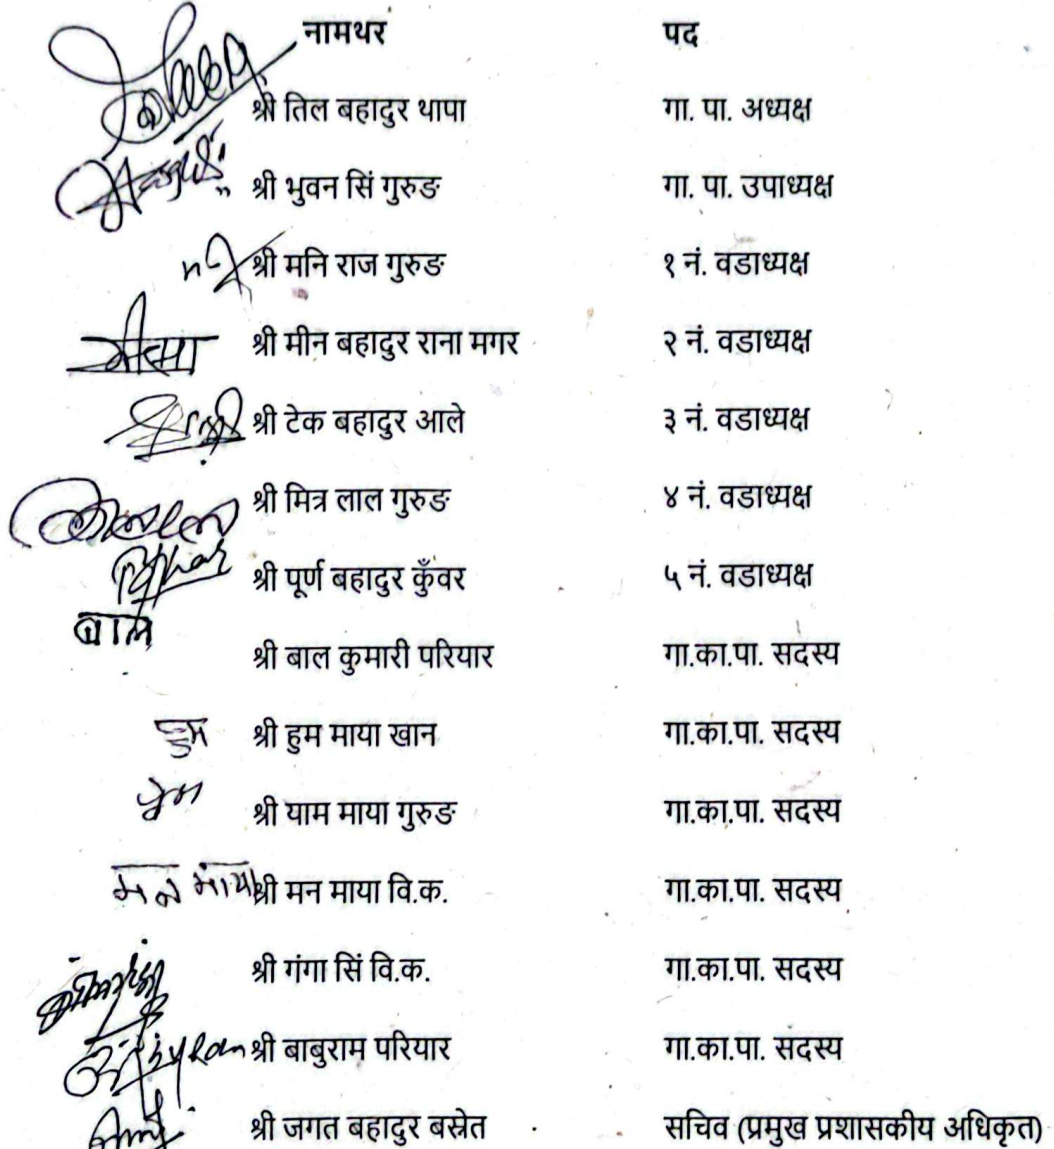 नामथर पद
श्री तिल बहादुर थापा गा. पा. अध्यक्ष
श्री भुवन सिं गुरुङ गा. पा. उपाध्यक्ष
श्री मनि राज गुरुङ १ नं. वडाध्यक्ष
श्री मीन बहादुर राना मगर २ नं. वडाध्यक्ष
श्री टेक बहादुर आले ३ नं. वडाध्यक्ष
श्री मित्र लाल गुरुङ ४ नं. वडाध्यक्ष
श्री पूर्ण बहादुर कुँवर ५ नं. वडाध्यक्ष
बाल
श्री बाल कुमारी परियार गा.का.पा. सदस्य
हुम श्री हुम माया खान गा.का.पा. सदस्य
श्री याम माया गुरुङ गा.का.पा. सदस्य
मन माया श्री मन माया वि.क. गा.का.पा. सदस्य
श्री गंगा सिं वि.क. गा.का.पा. सदस्य
श्री बाबुराम परियार गा.का.पा. सदस्य
श्री जगत बहादुर बस्नेत सचिव (प्रमुख प्रशासकीय अधिकृत)